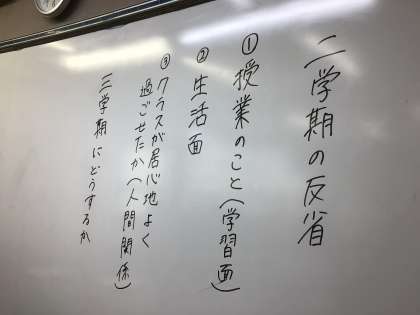 二学期の反省
① 授業のこと(学習面)
② 生活面
③ クラスが居心地よく
過ごせたか(人間関係)
三学期にどうするか